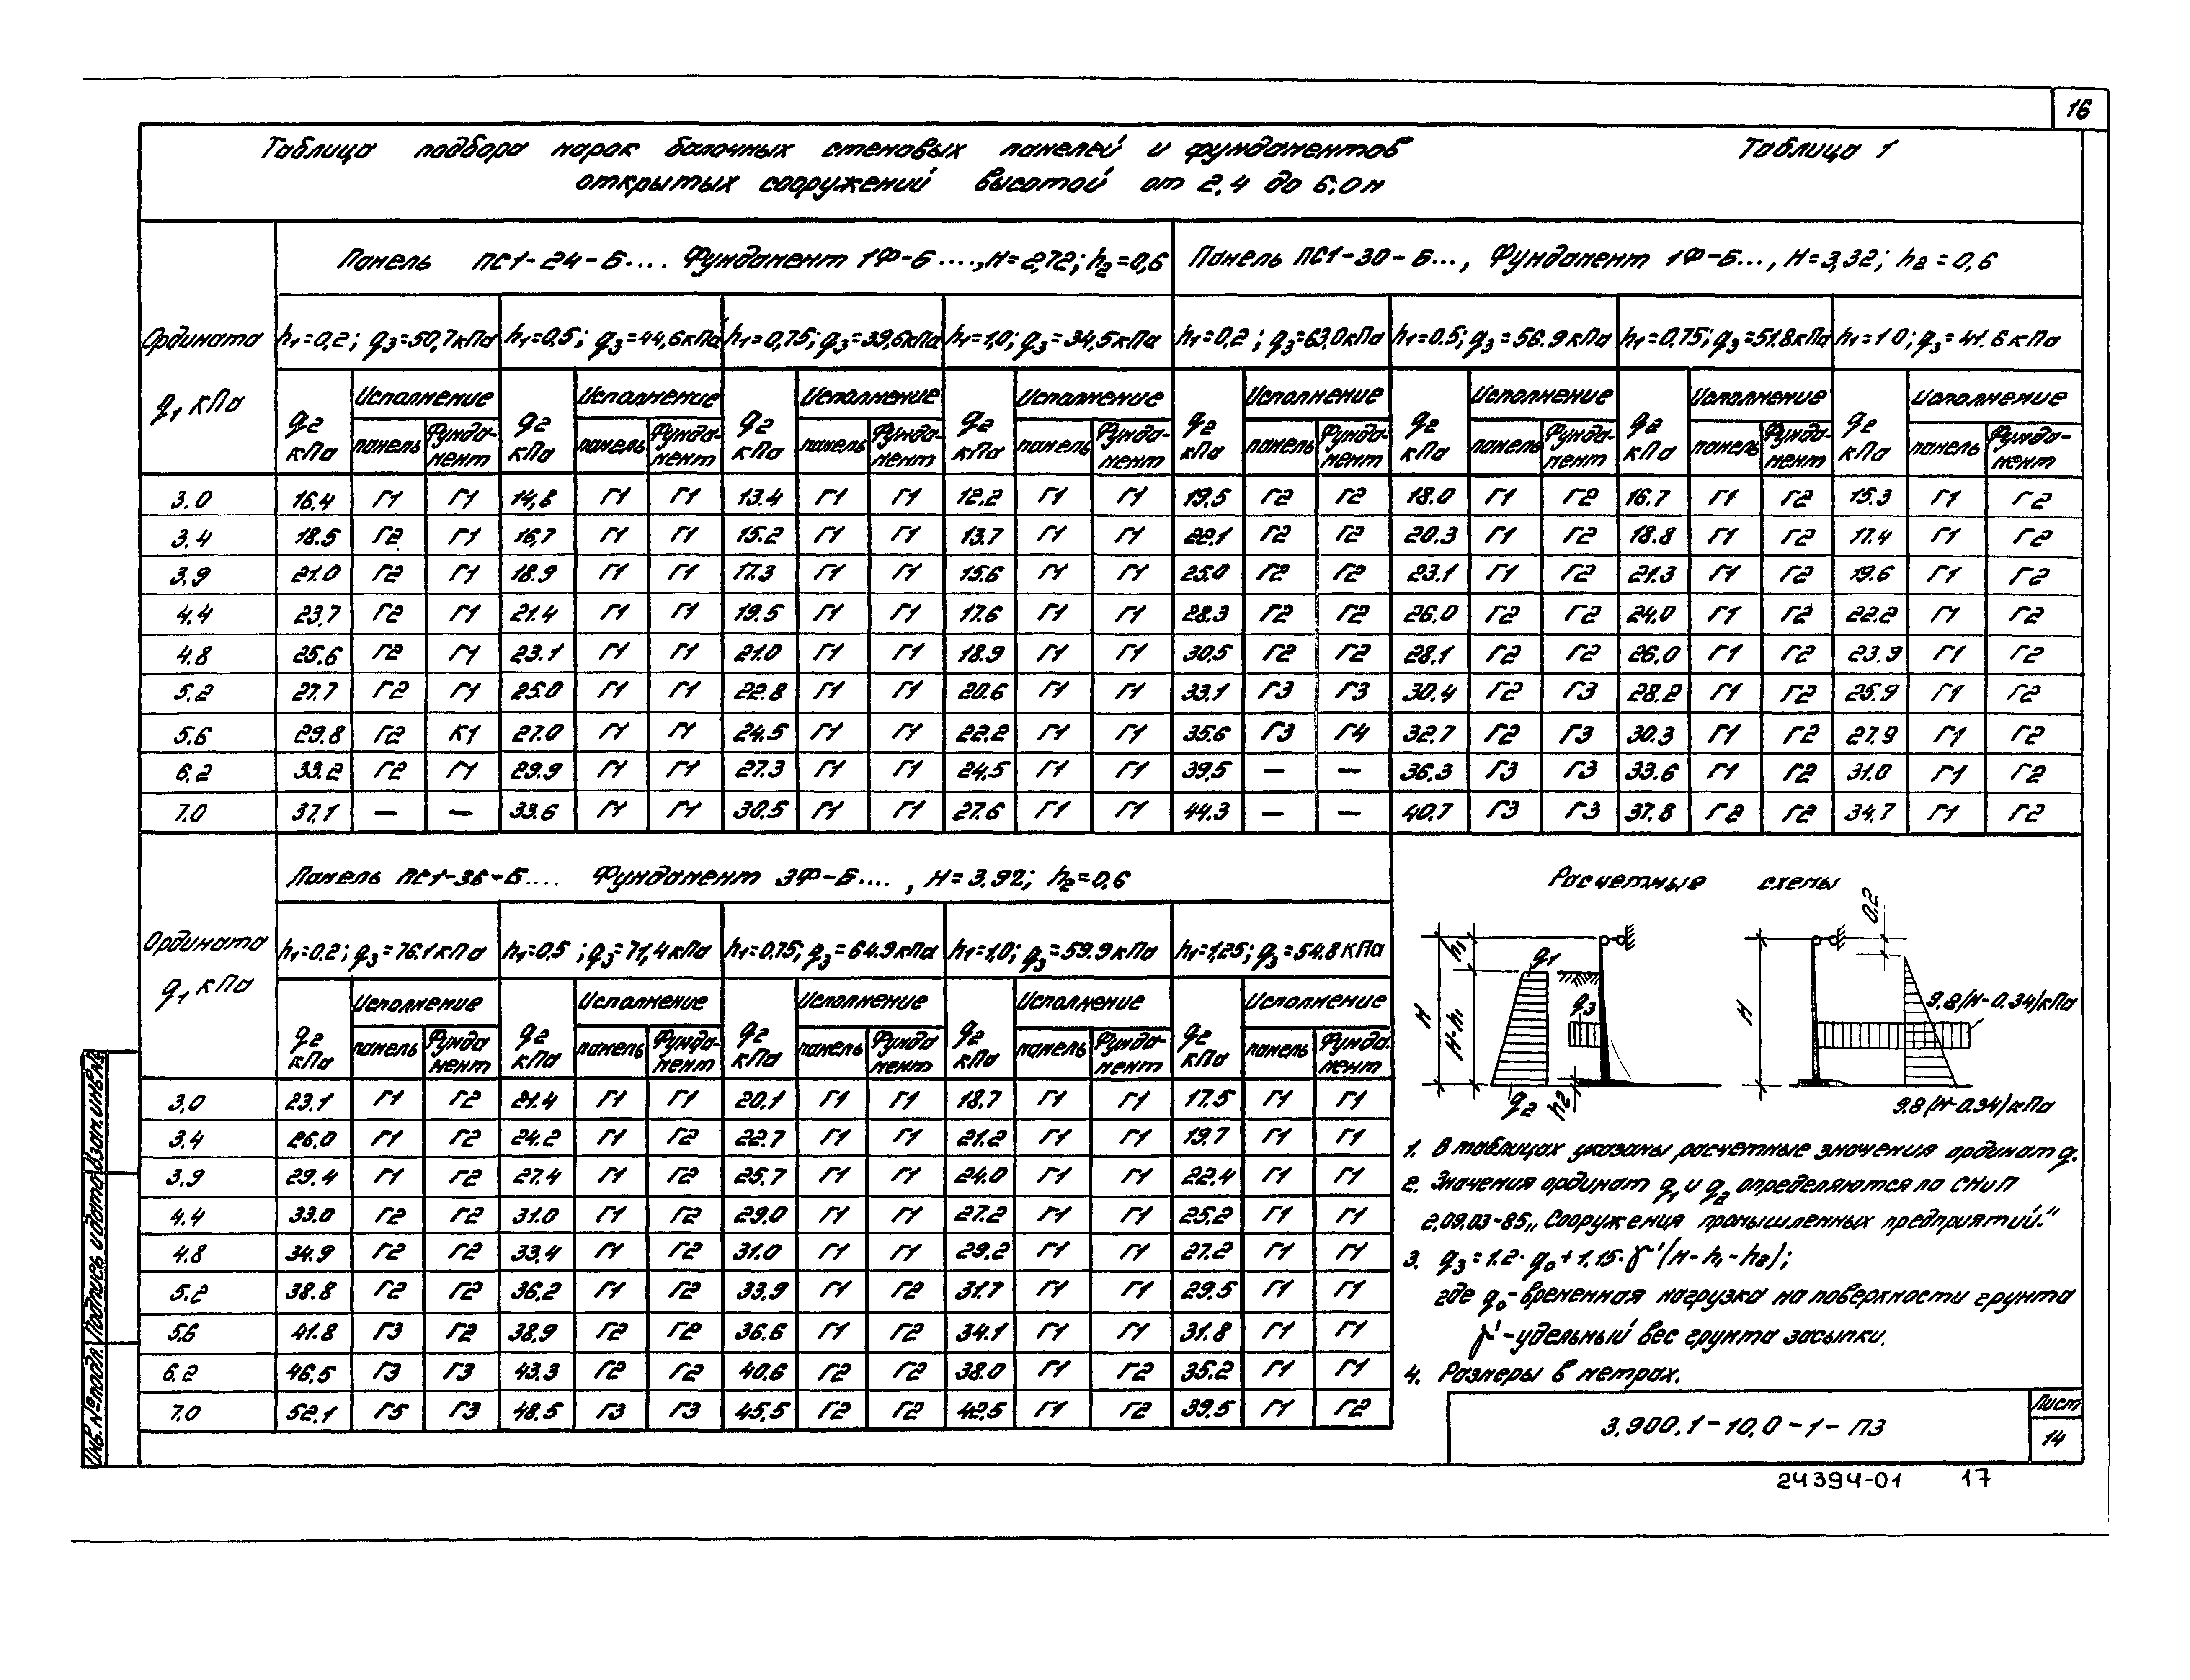 16
Таблица подбора марок балочных стеновых панелей и фундаментов Таблица 1
открытых сооружений высотой от 2,4 до 6,0м
Панель ПС1-24-Б.... Фундамент 1Ф-Б....,Н=2,72; h2=0,6 Панель ПС1-30-Б..., Фундамент 1Ф-Б..., Н=3,32; h2=0,6
Ордината h1=0,2; q3=50,7кПа h1=0,5; q3=44,6кПа h1=0,75; q3=39,6кПа h1=1,0; q3=34,5кПа h1=0,2; q3=63.0кПа h1=0.5; q3=56.9кПа h1=0.75; q3=51.8кПа h1=1 0; q3=41.6кПа
q1 кПа q2 Исполнение q2 Исполнение q2 Исполнение q2 Исполнение q2 Исполнение q2 Исполнение q2 Исполнение q2 Исполнение
кПа панель Фунда-мент кПа панель Фунда-мент кПа панель Фунда-мент кПа панель Фунда-мент кПа панель Фунда-мент кПа панель Фунда-мент кПа панель Фунда-мент кПа панель Фунда-мент
3.0 16.4 Г1 Г1 14,8 Г1 Г1 13.4 Г1 Г1 12.2 Г1 Г1 19,5 Г2 Г2 18.0 Г1 Г2 16.7 Г1 Г2 15.3 Г1 Г2
3.4 18.5 Г2 Г1 16,7 Г1 Г1 15.2 Г1 Г1 13.7 Г1 Г1 22.1 Г2 Г2 20.3 Г1 Г2 18.8 Г1 Г2 17.4 Г1 Г2
3,9 21.0 Г2 Г1 18.9 Г1 Г1 17.3 Г1 Г1 15.6 Г1 Г1 25.0 Г2 Г2 23.1 Г1 Г2 21.3 Г1 Г2 19.6 Г1 Г2
4.4 23,7 Г2 Г1 21.4 Г1 Г1 19.5 Г1 Г1 17.6 Г1 Г1 28.3 Г2 Г2 26.0 Г2 Г2 24.0 Г1 Г2 22.2 Г1 Г2
4.8 25.6 Г2 Г1 23.1 Г1 Г1 21.0 Г1 Г1 18.9 Г1 Г1 30,5 Г2 Г2 28.1 Г2 Г2 26.0 Г1 Г2 23.9 Г1 Г2
5,2 27.7 Г2 Г1 25.0 Г1 Г1 22.8 Г1 Г1 20.6 Г1 Г1 33,1 Г3 Г3 30.4 Г2 Г3 28.2 Г1 Г2 25.9 Г1 Г2
5.6 29.8 Г2 К1 27.0 Г1 Г1 24.5 Г1 Г1 22.2 Г1 Г1 35.6 Г3 Г4 32.7 Г2 Г3 30.3 Г1 Г2 27.9 Г1 Г2
6.2 33.2 Г2 Г1 29.9 Г1 Г1 27.3 Г1 Г1 24,5 Г1 Г1 39,5 — — 36.3 Г3 Г3 33.6 Г1 Г2 31.0 Г1 Г2
7.0 37.1 — — 33.6 Г1 Г1 30,5 Г1 Г1 27.6 Г1 Г1 44.3 — — 40.7 Г3 Г3 37.8 Г2 Г2 34,7 Г1 Г2
Панель ПС1-36-Б.... Фундамент 3Ф-Б...., Н=3.92; h2=0,6
Ордината h1=0.2; q3=76.1кПа h1=0,5; q3=71,4кПа h1=0.75; q3=64.9кПа h1=1,0; q3=59.9кПа h1=1,25; q3=54.8кПа
q1 кПа q2 Исполнение q2 Исполнение q2 Исполнение q2 Исполнение q2 Исполнение
кПа панель Фунда мент кПа панель Фунда-мент кПа панель Фунда мент кПа панель Фунда-мент кПа панель Фунда-мент
3,0 23.1 Г1 Г2 21.4 Г1 Г1 20.1 Г1 Г1 18.7 Г1 Г1 17.5 Г1 Г1
3.4 26.0 Г1 Г2 24.2 Г1 Г2 22.7 Г1 Г1 21.2 Г1 Г1 19.7 Г1 Г1
3,9 29.4 Г1 Г2 27.4 Г1 Г2 25.7 Г1 Г1 24.0 Г1 Г1 22.4 Г1 Г1
4.4 33.0 Г2 Г2 31.0 Г1 Г2 29.0 Г1 Г1 27.2 Г1 Г1 25,2 Г1 Г1
4.8 34.9 Г2 Г2 33,4 Г1 Г2 31.0 Г1 Г1 29.2 Г1 Г1 27.2 Г1 Г1
5.2 38.8 Г2 Г2 36,2 Г1 Г2 33,9 Г1 Г2 31.7 Г1 Г1 29.5 Г1 Г1
5.6 41.8 Г3 Г2 38,9 Г2 Г2 36.6 Г1 Г2 34.1 Г1 Г1 31.8 Г1 Г1
6.2 46,5 Г3 Г3 43.3 Г2 Г2 40.6 Г2 Г2 38.0 Г1 Г2 35.2 Г1 Г1
7.0 52.1 Г5 Г3 48.5 Г3 Г3 45,5 Г2 Г2 42,5 Г1 Г2 39.5 Г1 Г2
Расчетные схемы
0.2
h1
q1
q3
Н
Н-h1
q2
h2
Н
9.8(Н-0.34)кПа
9.8(Н-0.34)кПа
1. В таблицах указаны расчетные значения ординат q.
2. Значения ординат q1 и q2 определяются по СНиП
2.09.03-85 „Сооружения промышленных предприятий."
3. q3=1.2·q0+1,15·γ'(Н-h1-h2);
где q0-временная нагрузка на поверхности грунта
γ'-удельный вес грунта засыпки.
4. Размеры в метрах.
3.900.1-10.0-1-ПЗ
Лист
14
24394-01 17
Инв.№подл. Подпись и дата Взам.инв.№